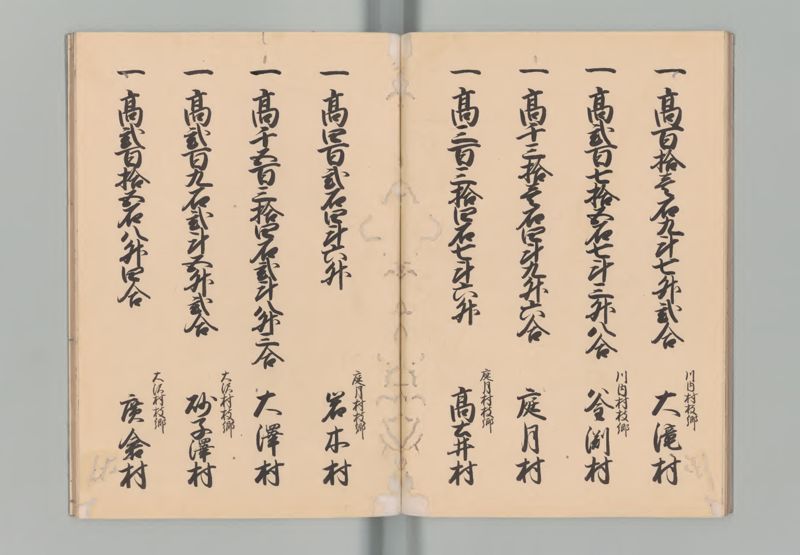 一 高百拾壱石九斗七升弐合
川内村枝郷
大滝村
一 高弐百七拾五石七斗三升八合
川内村枝郷
釜渕村
一 高千三拾壱石四斗九升六合
庭月村
一 高三百三拾四石七斗六升
庭月村枝郷
高土井村
一 高四百弐石四斗六升
庭月村枝郷
岩木村
一 高千五百三拾四石弐斗八升三合
大澤村
一 高弐百九石弐斗五升弐合
大沢村枝郷
砂子澤村
一 高弐百拾五石八升四合
大沢村枝郷
廣倉村